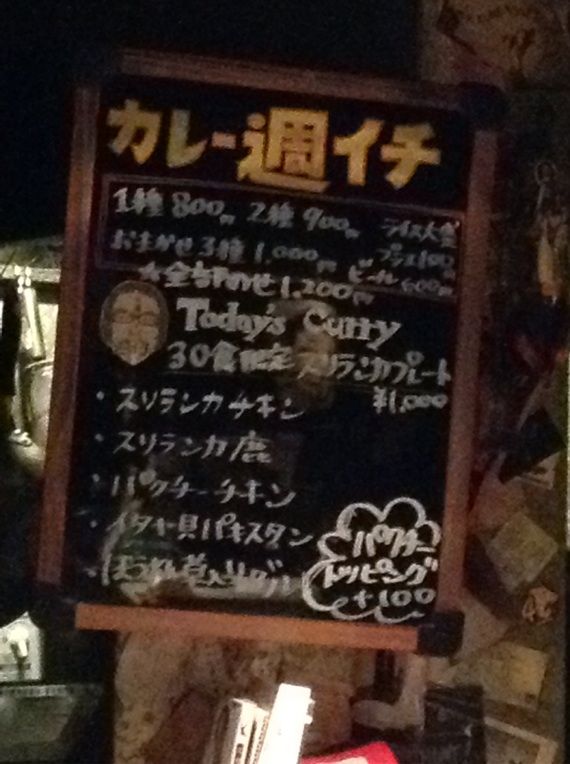 カレー週イチ
1種 800円 2種 900円 ライス大盛
おまかせ3種 1,000円 プラス100円
★全部のせ1,200円 ビール600円
Today's Curry
30食限定 スリランカプレート
¥1,000
・スリランカチキン
・スリランカ鹿
・パクチーチキン
・イタヤ貝パキスタン
・ほうれん草入り
パクチー
トッピング
+100